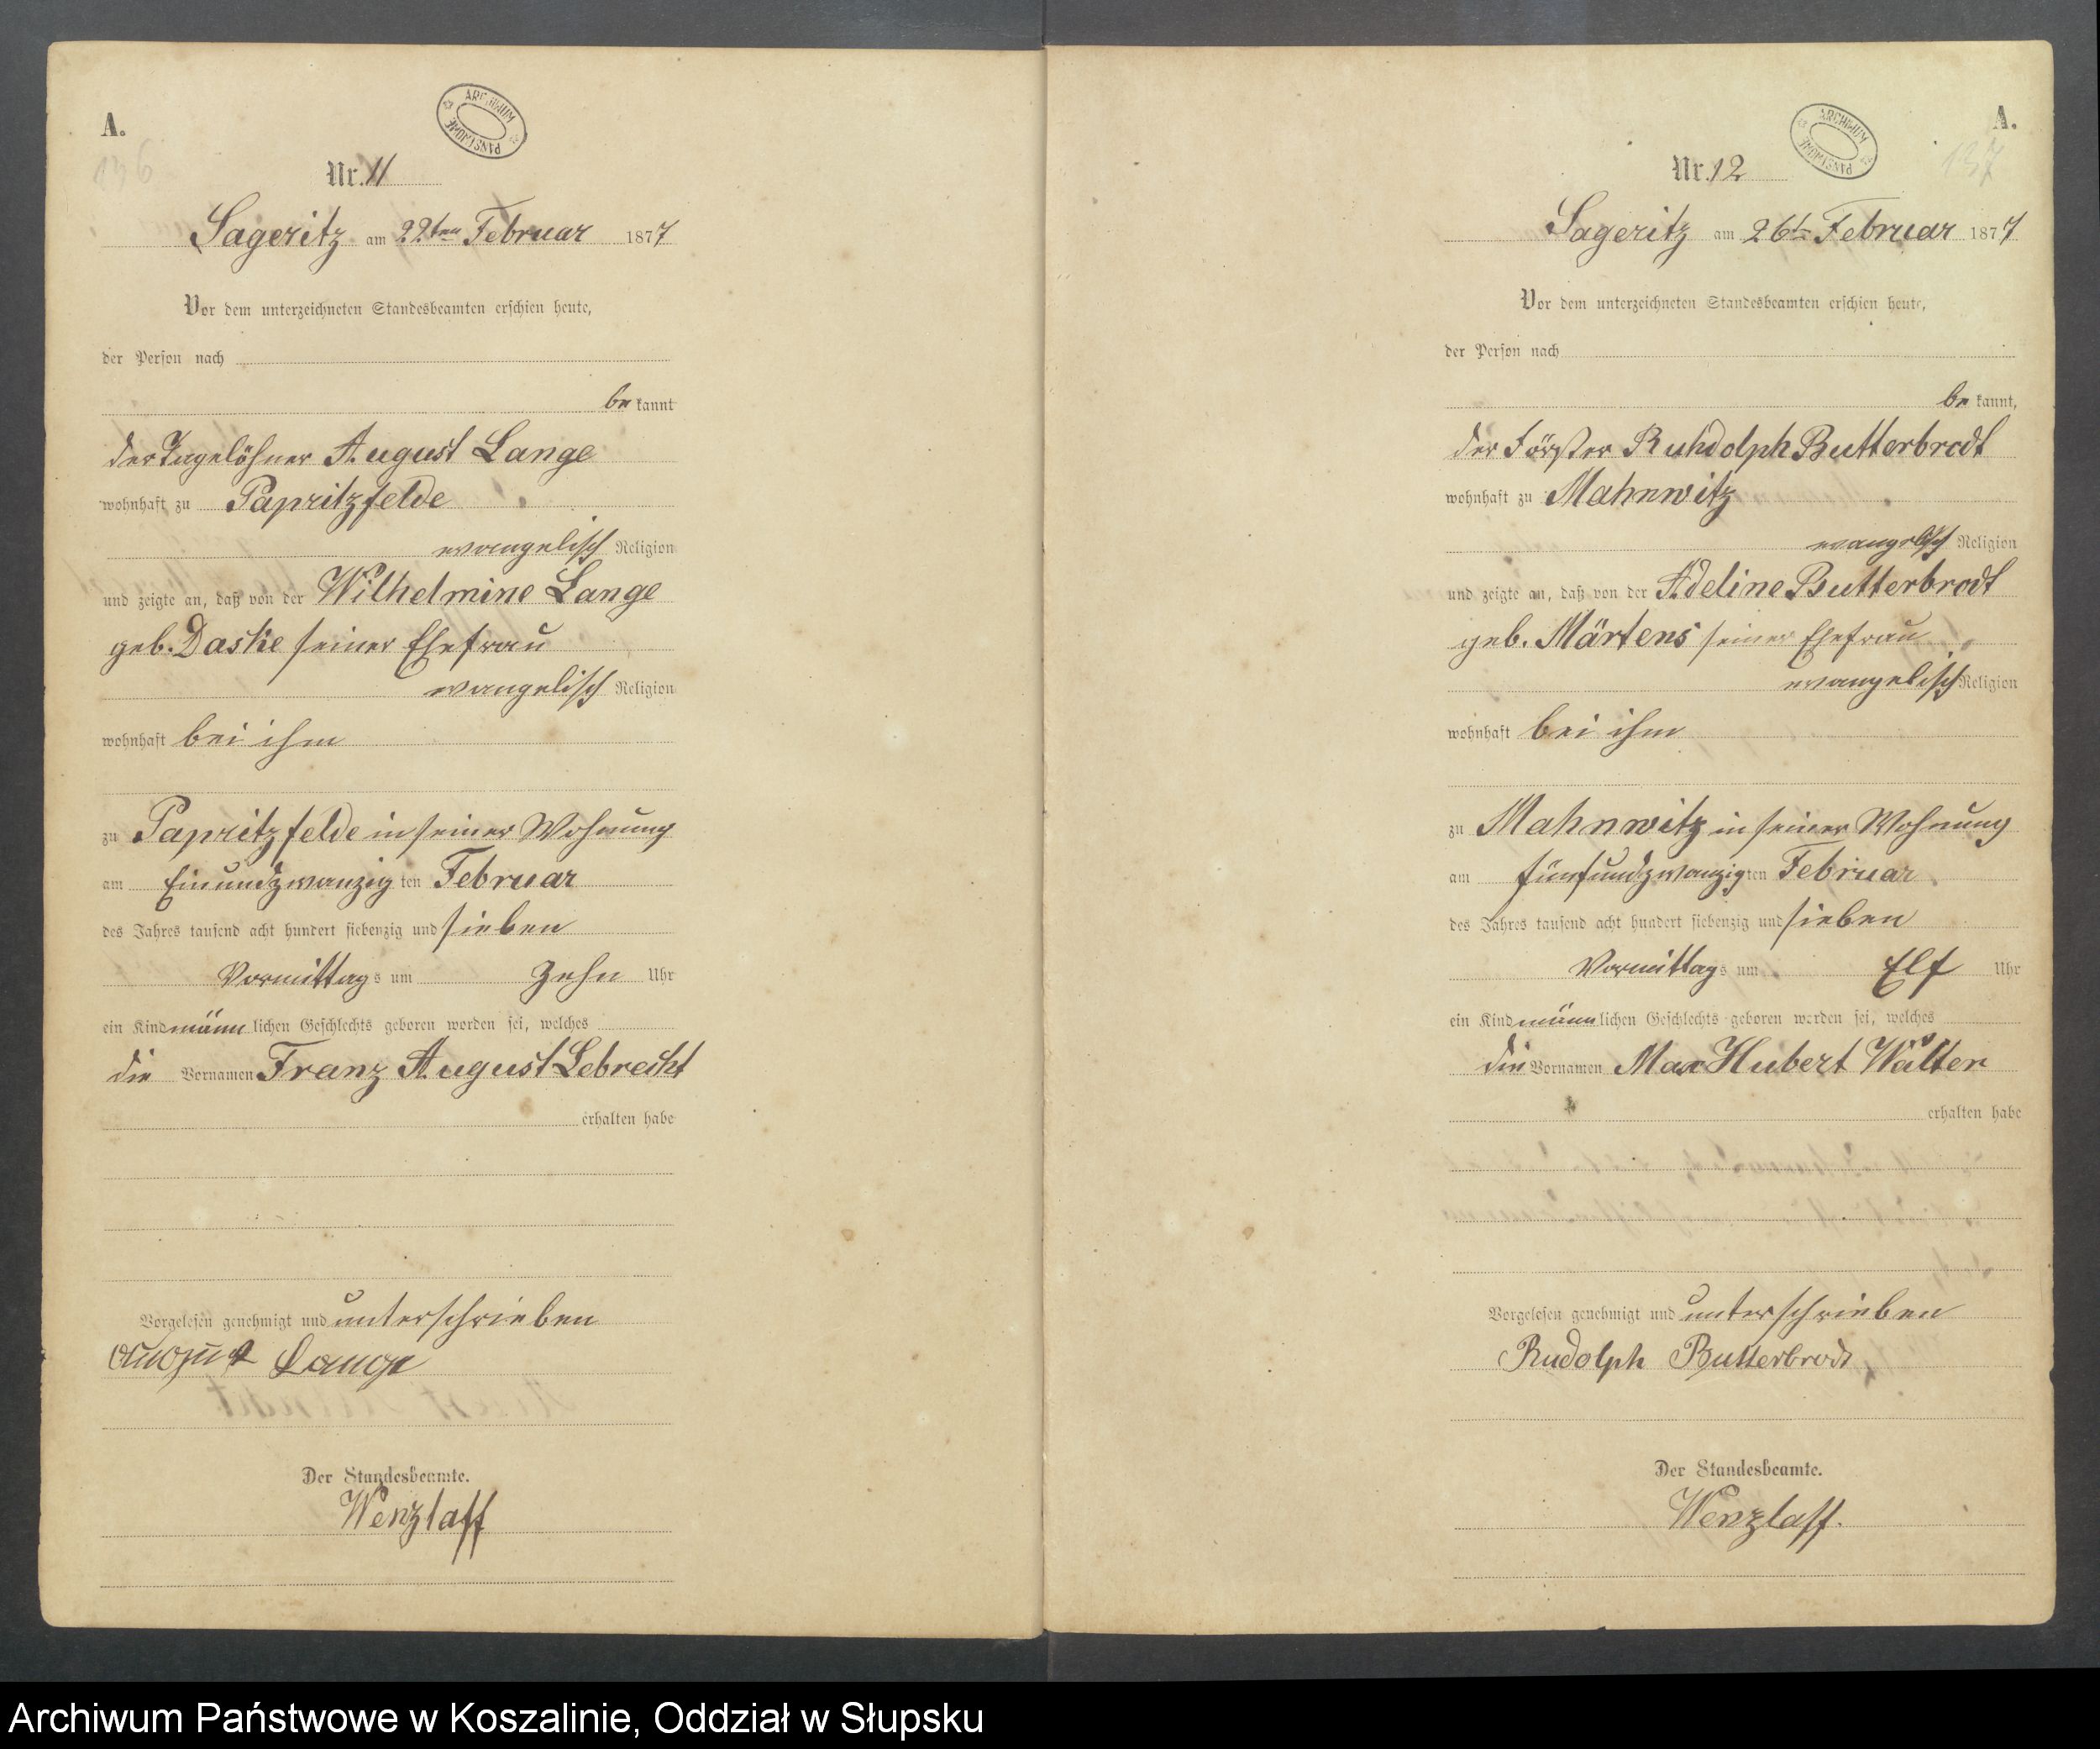 A.
136
Nr. 11
Sageritz am 22ten Februar 1877
Vor dem unterzeichneten Standesbeamten erschien heute,
der Person nach
be kannt
der Tagelöhner August Lange
wohnhaft zu Papritzfelde
evangelisch Religion
und zeigte an, daß von der Wilhelmine Lange
geb. Daske seiner Ehefrau
evangelisch Religion
wohnhaft bei ihm
zu Papritzfelde in seiner Wohnung
am Einundzwanzig ten Februar
des Jahres tausend acht hundert siebenzig und sieben
Vormittag s um Zehn Uhr
ein Kind männ lichen Geschlechts geboren worden sei, welches
die Vornamen Franz August Lebrecht
erhalten habe
Vorgelesen genehmigt und unterschrieben
August Lange
Der Standesbeamte.
Wenzlaff
ARCHIWUM PAŃSTWOWE
A.
137
Nr. 12
Sageritz am 26t Februar 1877
Vor dem unterzeichneten Standesbeamten erschien heute,
der Person nach
be kannt,
der Förster Ruhdolph Butterbrodt
wohnhaft zu Mahnwitz
evangelisch Religion
und zeigte an, daß von der Adeline Butterbrodt
geb. Märtens seiner Ehefrau
evangelisch Religion
wohnhaft bei ihm
zu Mahnwitz in seiner Wohnung
am fünfundzwanzig ten Februar
des Jahres tausend acht hundert siebenzig und sieben
Vormittag s um Elf Uhr
ein Kind männ lichen Geschlechts geboren worden sei, welches
die Vornamen Max Hubert Walter
erhalten habe
Vorgelesen genehmigt und unterschrieben
Rudolph Butterbrodt
Der Standesbeamte.
Wenzlaff.
ARCHIWUM PAŃSTWOWE
Archiwum Państwowe w Koszalinie, Oddział w Słupsku